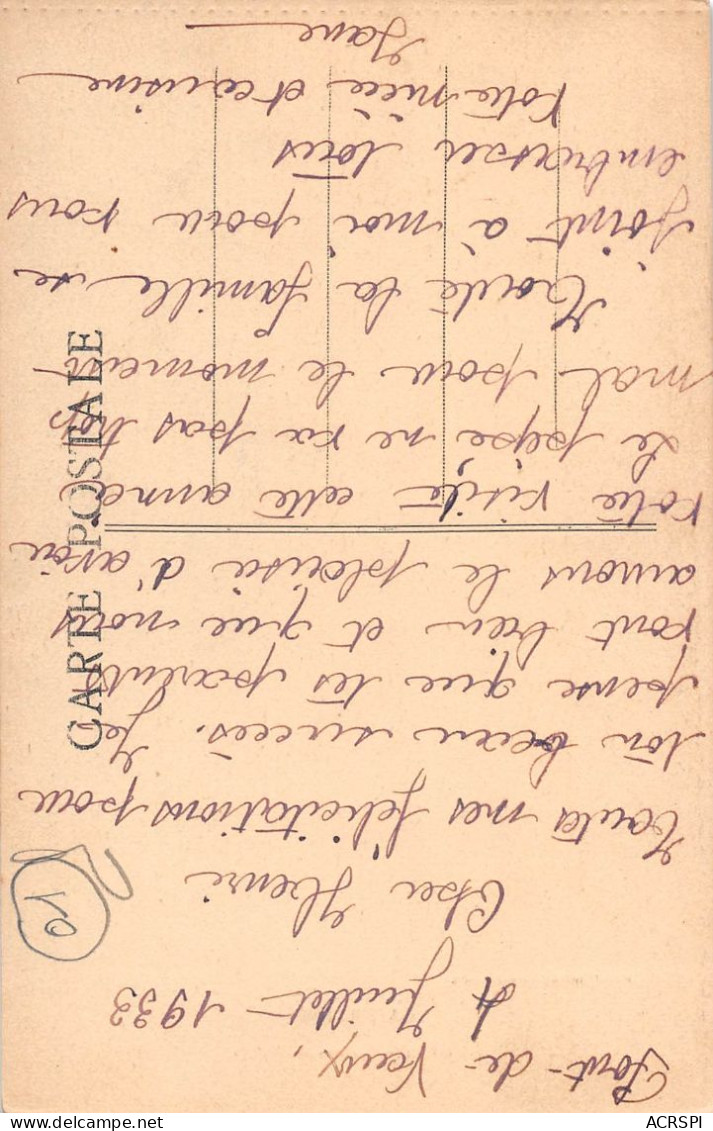 CARTE POSTALE
Pont-de-Vaux,
4 Juillet 1933
Cher Henri
Toutes mes félicitations pour
ton beau succès. Je
pense que tes parents
vont bien et que nous
aurons le plaisir d'avoir
votre visite cette année
Le pépé ne va pas trop
mal pour le moment
Toute la famille se
joint à moi pour vous
embrasser tous
Votre nièce et cousine
Jane
10
ACRSPI